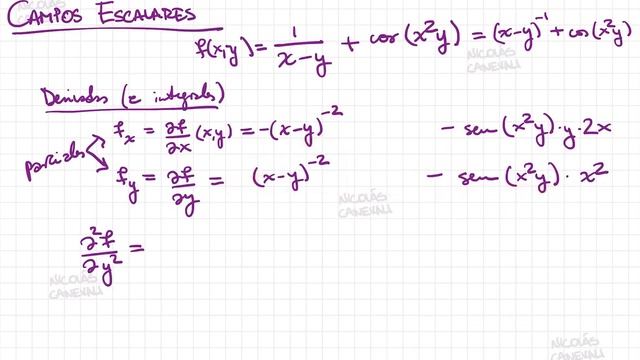 CAMPOS ESCALARES
f(x,y) = 1/(x-y) + cos(x²y) = (x-y)⁻¹ + cos(x²y)
NICOLÁS CANEVALI
Derivadas (e integrales)
parciales
fₓ = ∂f/∂x (x,y) = -(x-y)⁻² - sen(x²y)·y·2x
f_y = ∂f/∂y = (x-y)⁻² - sen(x²y)·x²
NICOLÁS CANEVALI
∂²f/∂y² =
NICOLÁS CANEVALI
NICOLÁS CANEVALI